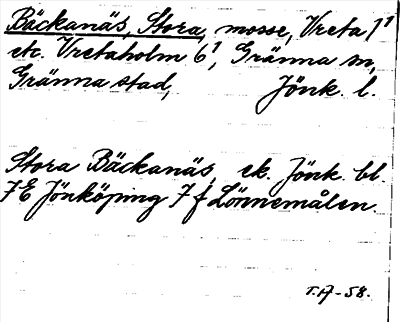 Bäckanäs, Stora, mosse, Vreta 1¹
ek. Vretaholm 6¹, Gränna sn,
Gränna stad, Jönk. l.
Stora Bäckanäs, ek. Jönk. bl.
7E Jönköping 7f Lönnemålen.
T.A-58.